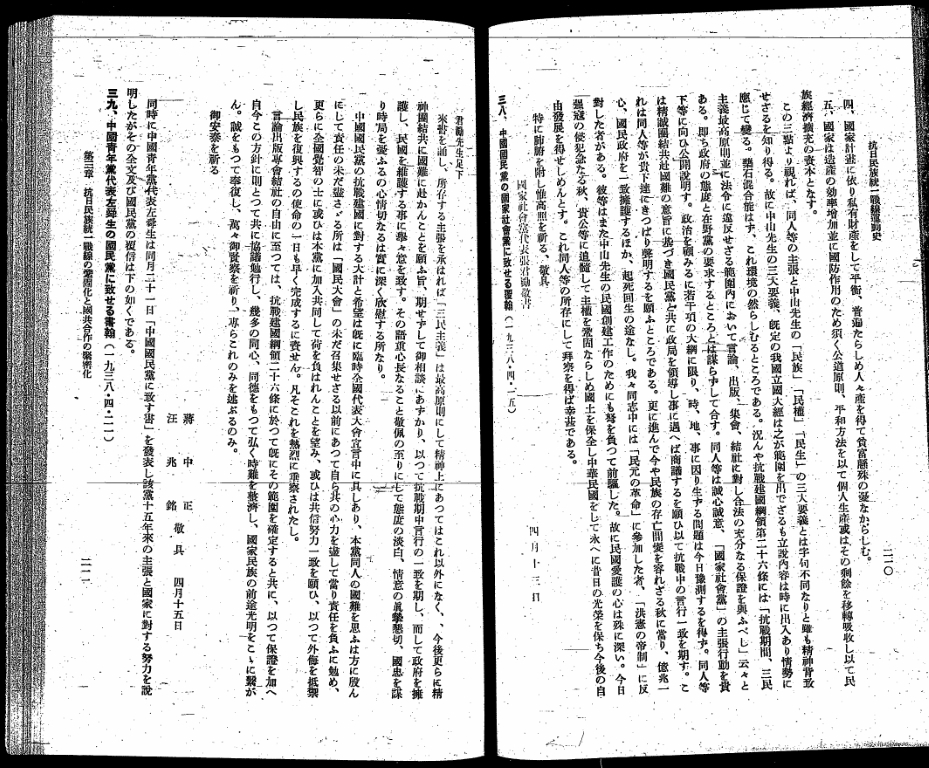 抗日民族統一戰線運動史
二一〇
四、國家計畫に依り私有財產をして平衡、普遍たらしめ人々產を得て貧富懸殊の憂なからしむ。
五、國家は造產の効率增加並に國防作用のため須く公道原則、平和方法を以て個人生產或はその剩餘を移轉吸收し以て民
族經濟擴充の資本となす。
この三點より視れば、同人等の主張と中山先生の「民族」「民權」「民生」の三大要義とは字句不同なりと雖も精神背致
せざるを知り得る。故に中山先生の三大要義、旣定の我國立國大經は之が範圍を出でざるも立說內容は時に出入あり情勢に
應じて變る。鑿石混合能はず、これ環境の然らしむるところである。況んや抗戰建國綱領第二十六條には「抗戰期間、三民
主義最高原則並に法令に違反せざる範圍內において言論、出版、集會、結社に對し合法の充分なる保證を與ふべし」云々と
ある。卽ち政府の態度と在野黨の要求するところとは謀らずして合す。同人等は誠心誠意、「國家社會黨」の主張行動を貴
下等に向ひ公開說明す。政治を顧みるに若干項の大綱に限り、時、地、事に因り生ずる問題は今日豫測するを得ず。同人等
は精誠團結共赴國難の意旨に基づき國民黨と共に政局を領導し事に遇へば商議するを願ひ以て抗戰中の言行一致を期す。こ
れは同人等が貴下達にきつぱり聲明するを願ふところである。更に進んで今や民族の存亡間髮を容れざる秋に當り、億兆一
心、國民政府を一致擁護するほか、起死回生の途なし。我々同志中には「民元の革命」に參加した者、「洪憲の帝制」に反
對した者がある。彼等はまた中山先生の民國創建工作のためにも弩を負つて前驅した。故に民國愛護の心は殊に深い。今日
強寇の侵犯急なる秋、貴公等に追隨して主權を鞏固ならしめ國土を保全し中華民國をして永へに昔日の光榮を保ち今後の自
由發展を得せしめんとす。これ同人等の所存にして拜察を得ば幸甚である。
特に肺腑を附し惟高照を祈る、敬具
國家社會黨代表張君勱敬書
四月十三日
三八、中國國民黨の國家社會黨に致せる覆翰(一九三八・四・一五)
君勱先生足下
來書を誦し、所存する主張を承はれば「三民主義」は最高原則にして精神上にあつてはこれ以外になく、、今後更らに精
神團結共に國難に赴かんことを願ふ旨、期せずして御相談にあずかり、以つて抗戰期中言行の一致を期し、而して政府を擁
護し、民國を維護する事に擧々意を致す。その語重心長なること敬佩の至りにして態度の淡白、情意の眞摯懇切、國忠を謀
り時局を憂ふるの心情切なるは實に深く欣慰する所なり。
中國國民黨の抗戰建國に對する大計と希望は旣に臨時全國代表大會宣言中に具しあり、本黨同人の國難を思ふは方に殷ん
にして責任の未だ盡さゞる所は「國民大會」の未だ召集せざる以前にあつて自ら共の心力を盡して當り責任を負ふに勉め、
更らに全國覺智の士に或ひは本黨に加入共同して荷を負はれんことを望み、或ひは共信努力一致を願ひ、以つて外侮を抵禦
し民族を復興するの使命の一日も早く完成するに資せん。凡そこれを熱烈に垂察されたし。
言論出版專會結社の自由に至つては、抗戰建國綱領二十六條に於つて旣にその範圍を確定すると共に、以つて保證を加へ
自今この方針に則とつて共に協議勉行し、幾多の同心、同德をもつて弘く時難を整濟し、國家民族の前途光明をこゝに繫が
ん。誠をもつて奉復し、萬々御賢察を祈り、專らこれのみを述ぶるのみ。
御安泰を祈る
蔣中正
汪兆銘 敬具 四月十五日
同時に中國青年黨代表左舜生は同月二十一日「中國國民黨に致す書」を發表し該黨十五年來の主張と國家に對する努力を說
明したがその全文及び國民黨の覆信は下の如くである。
三九、中國青年黨代表左舜生の國民黨に致せる書翰(一九三八・四・二一)
第三章 抗日民族統一戰線の鞏固化と國共合作の緊密化
二一一